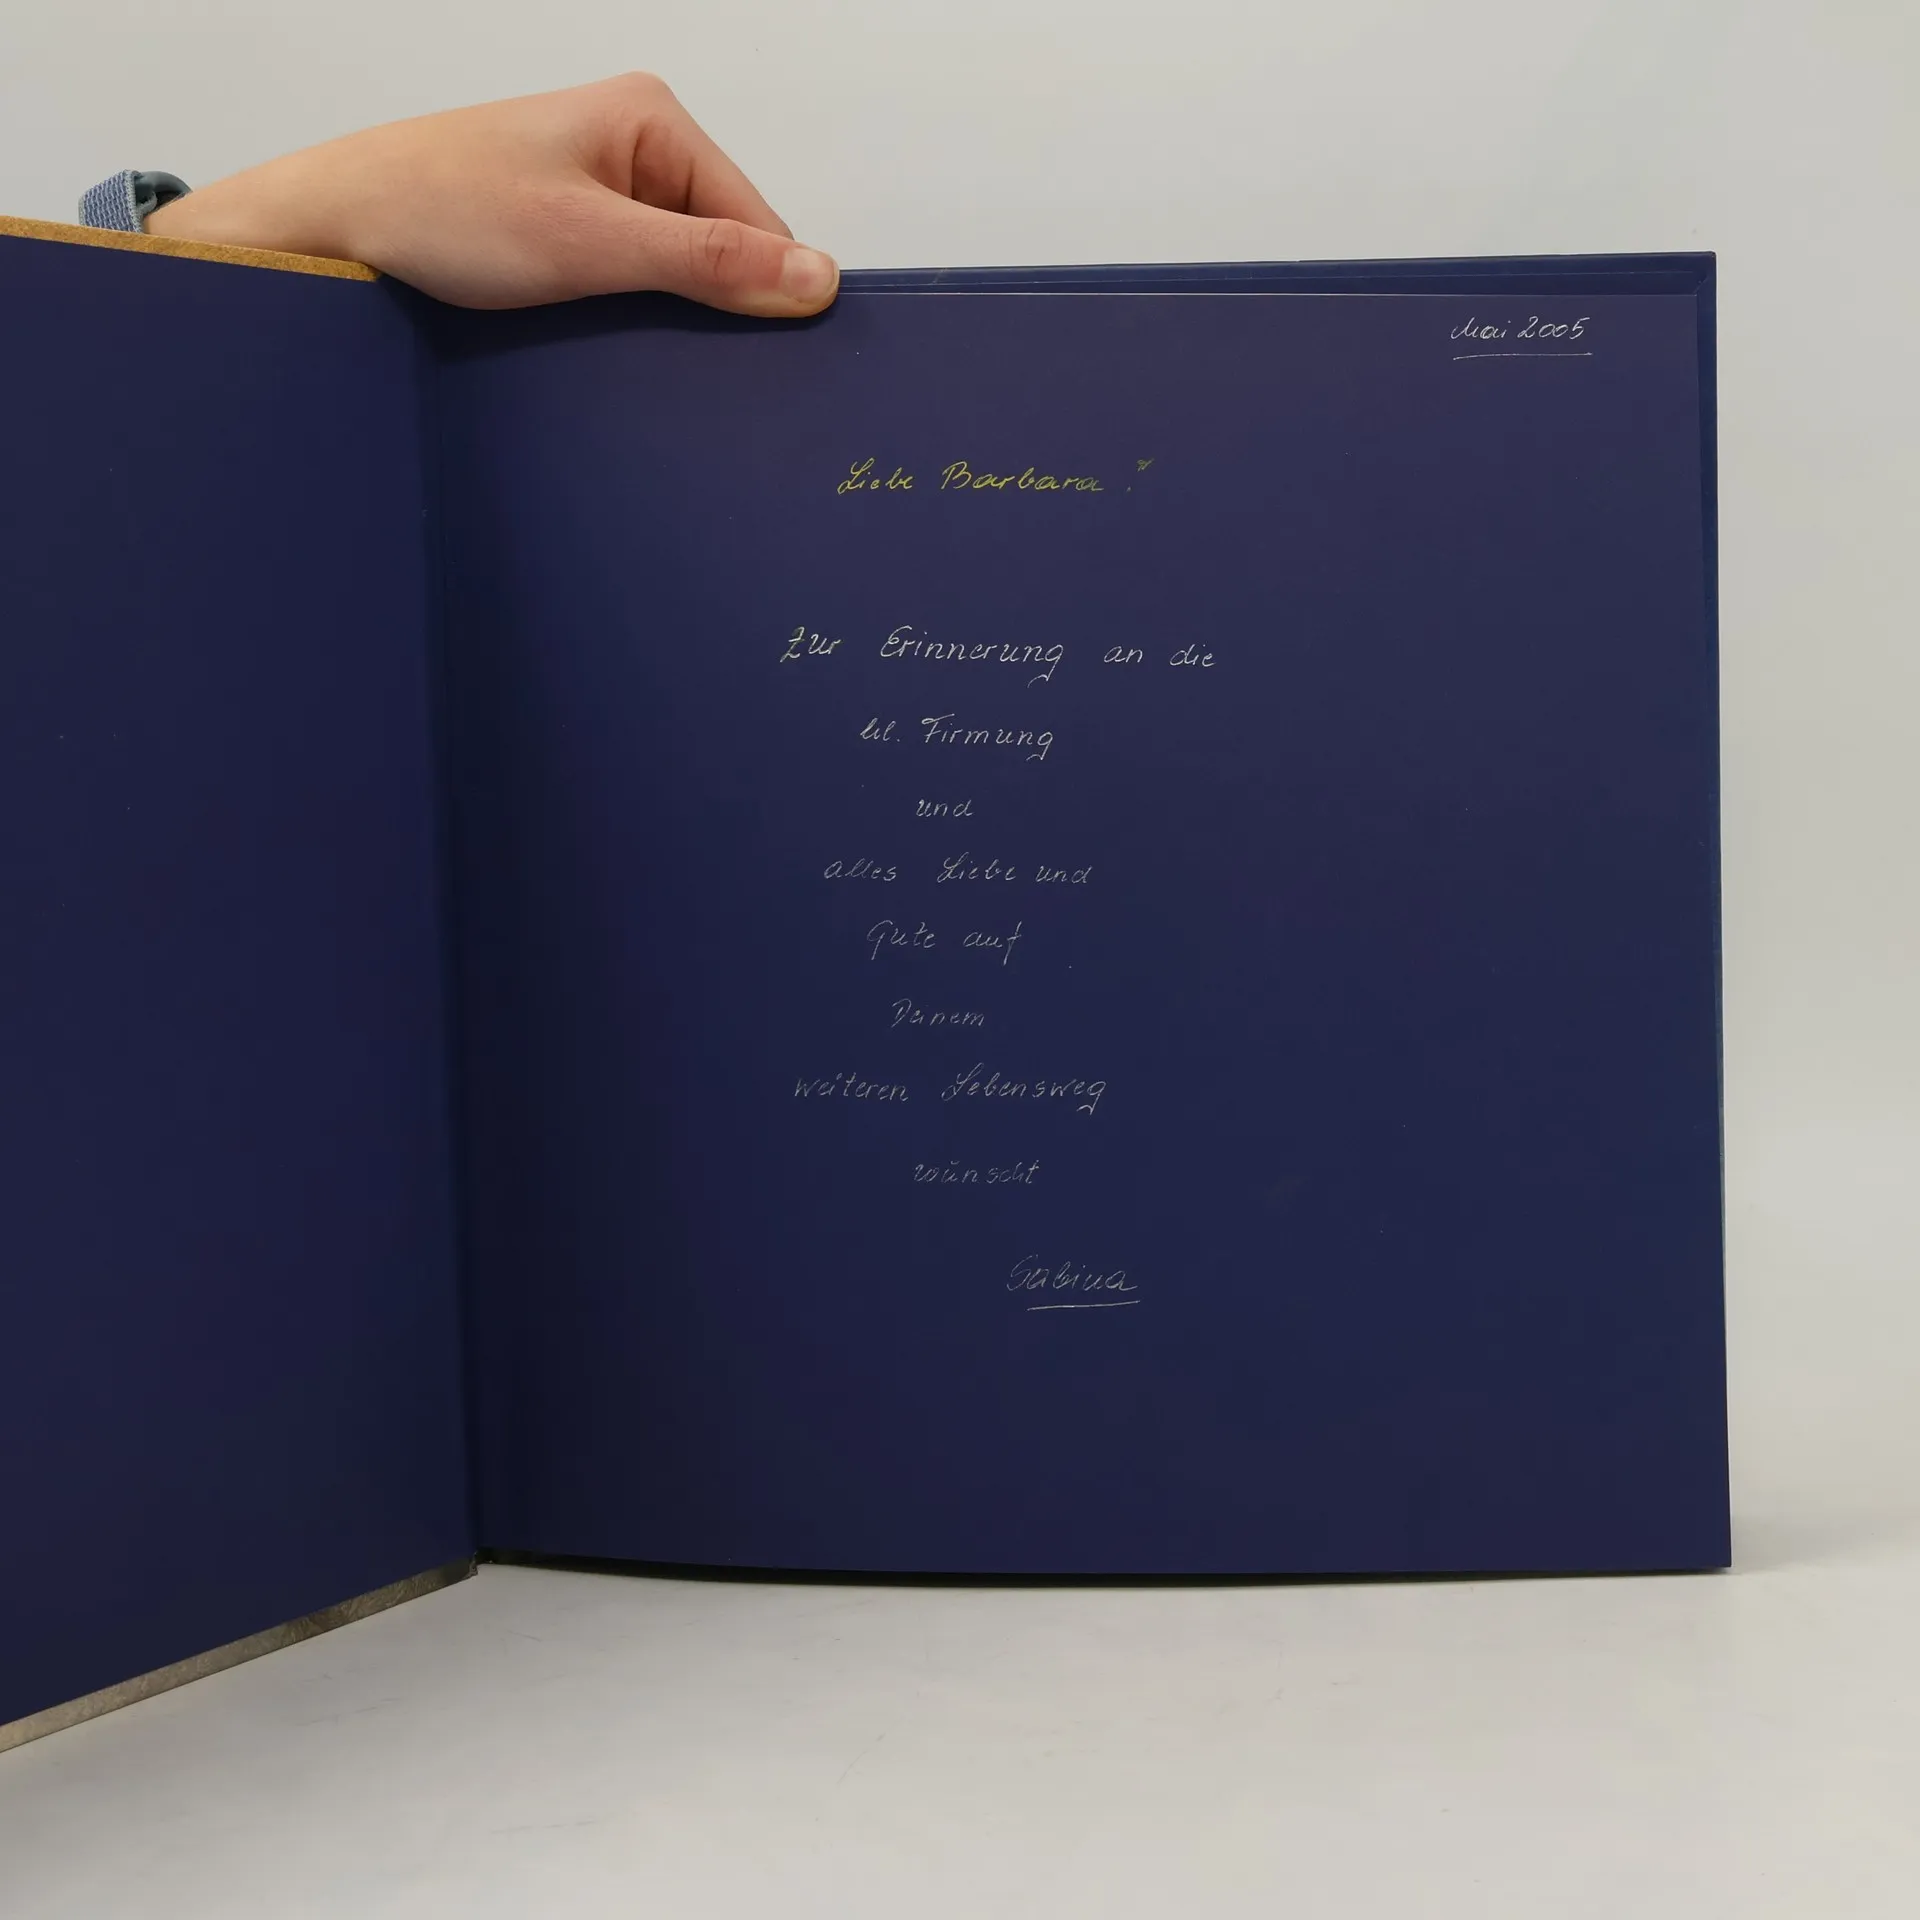 Mai 2005
Liebe Barbara!
Zur Erinnerung an die
hl. Firmung
und
alles Liebe und
Gute auf
Deinem
weiteren Lebensweg
wünscht
Sabina